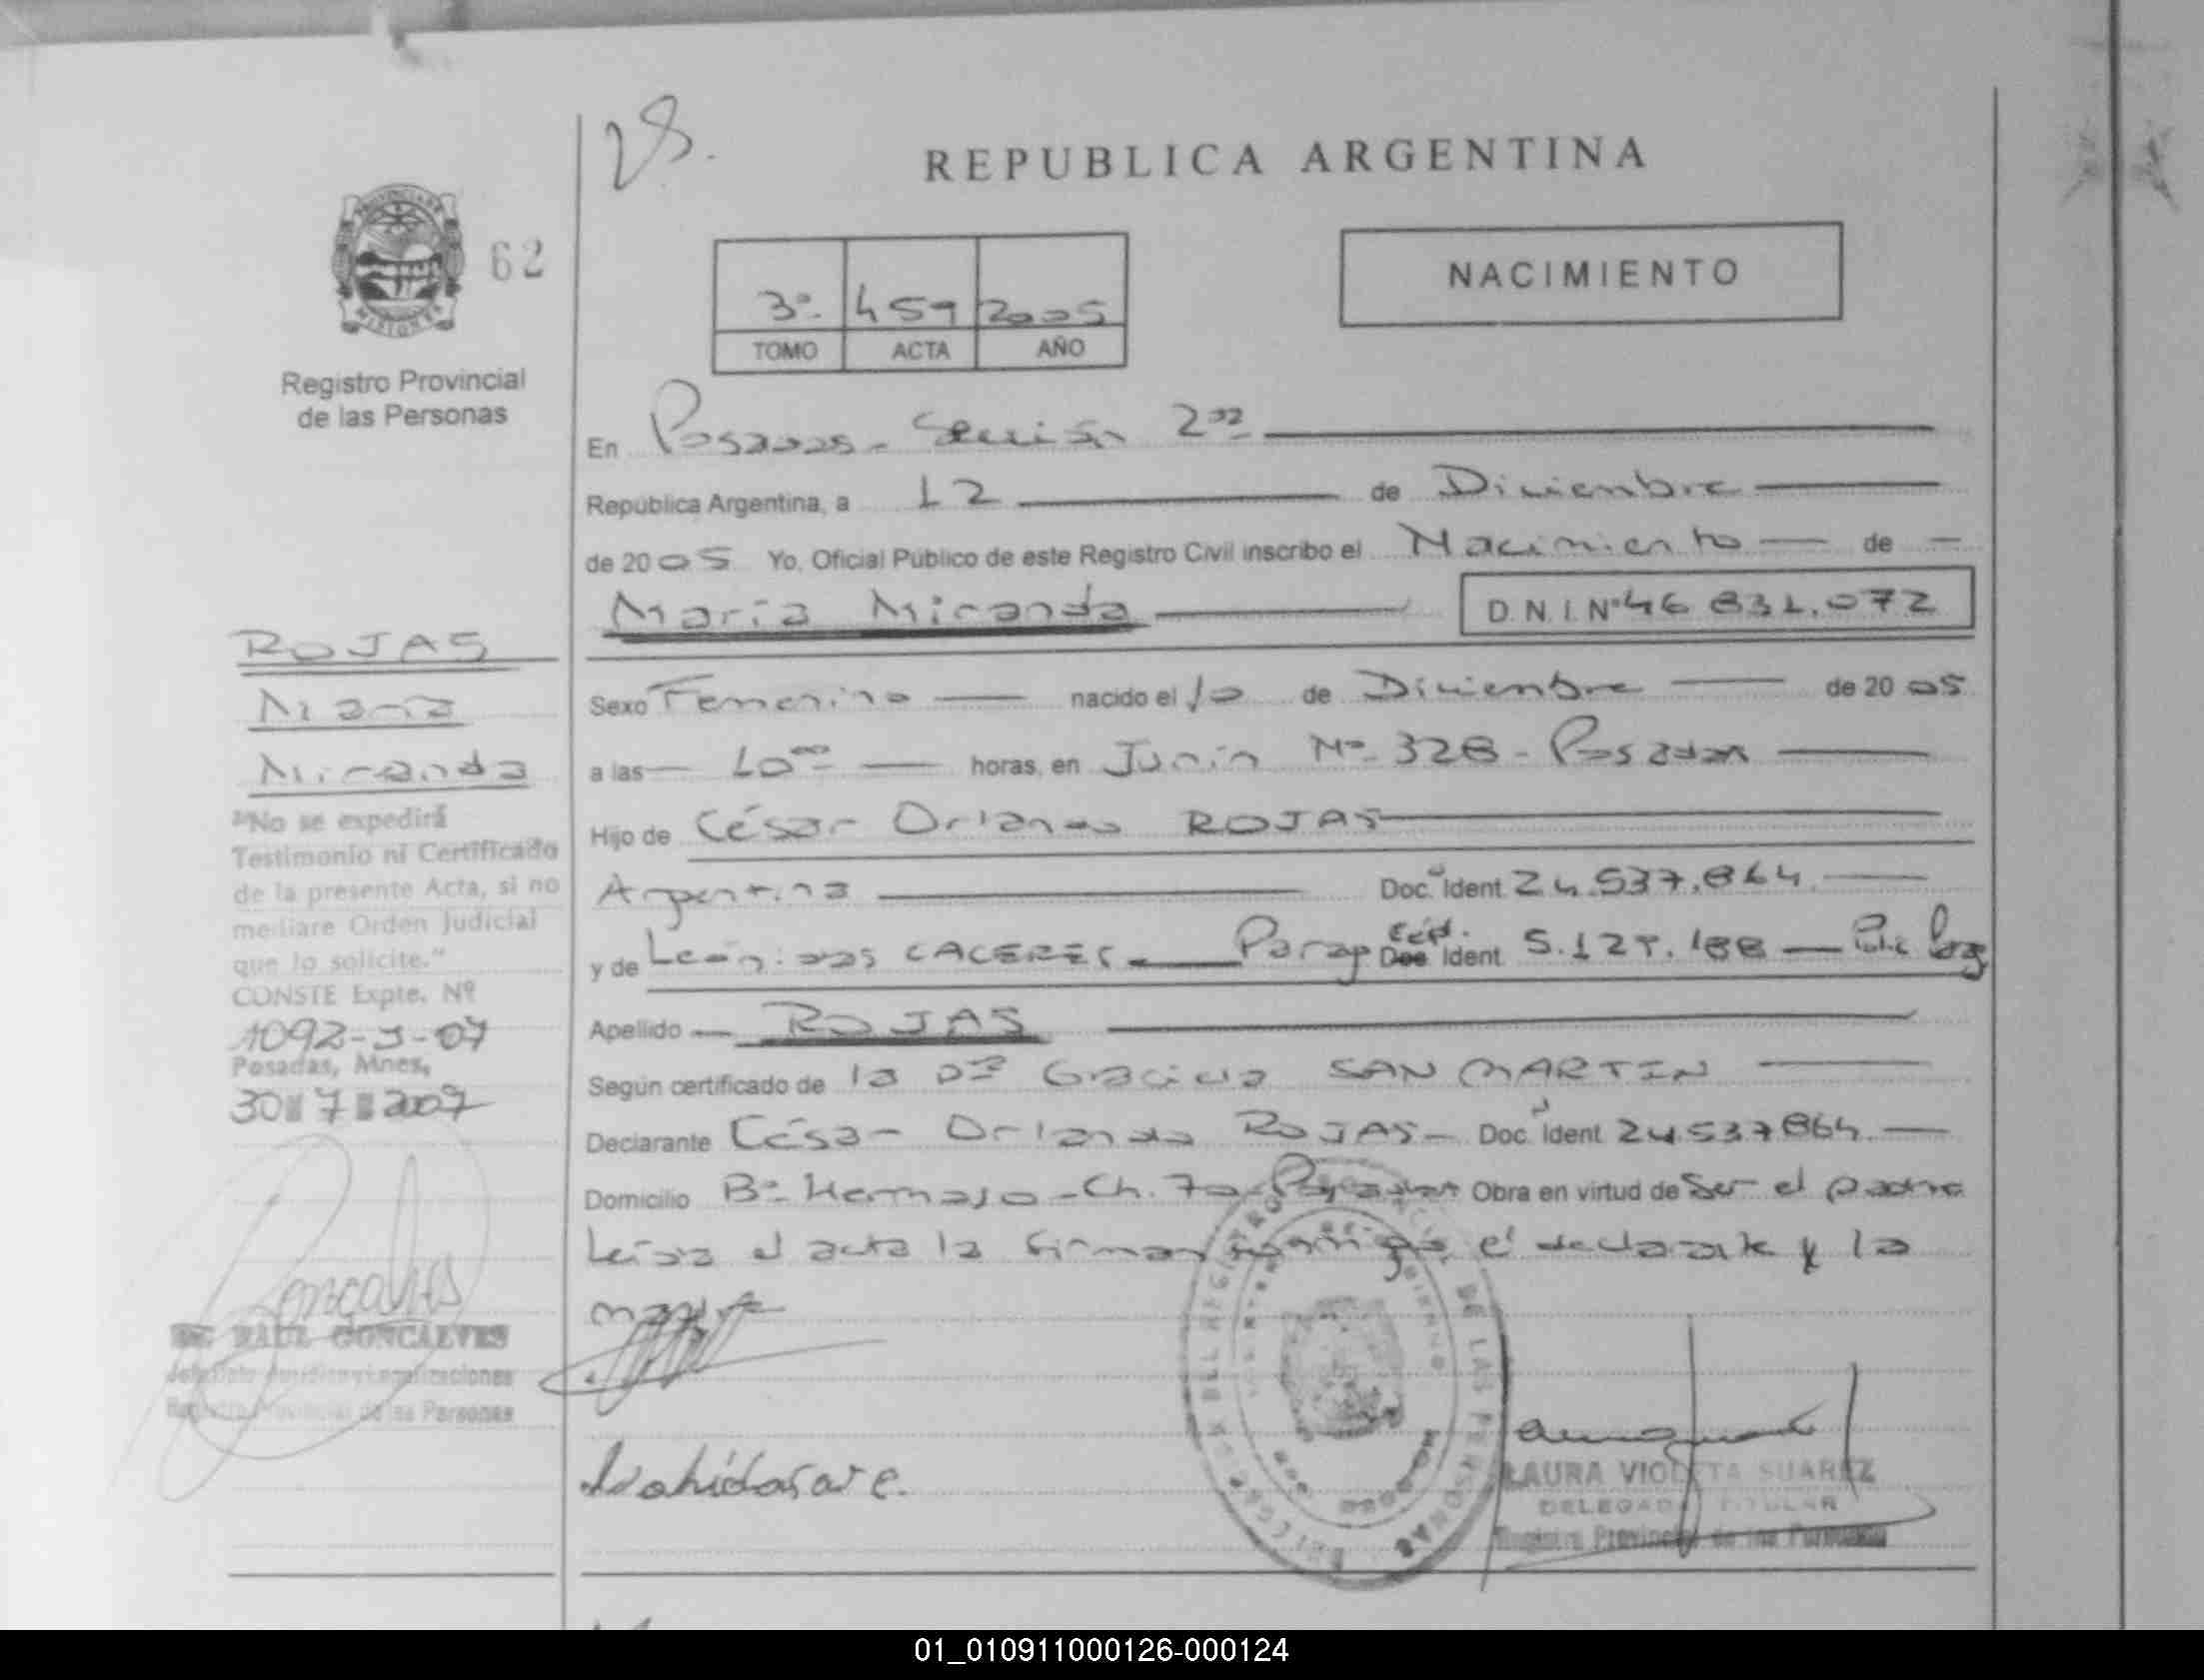 28.
REPUBLICA ARGENTINA
62
NACIMIENTO
3º 459 2005
TOMO ACTA AÑO
Registro Provincial
de las Personas
En Posadas - Sección 2da
República Argentina, a 12 de Diciembre
de 2005 Yo, Oficial Público de este Registro Civil inscribo el Nacimiento de
María Miranda D.N.I.Nº 46 831.072
ROJAS
María
Miranda
Sexo Femenino nacido el 10 de Diciembre de 2005
a las 10 00 horas, en Junín Nº 328 - Posadas
Hijo de César Orlando ROJAS
Argentina Doc. Ident 24.537.864
y de Leónidas CACERES Parag Céd. Ident 5.129.188
Apellido ROJAS
Según certificado de la Dra Graciela SAN MARTIN
Declarante César Orlando ROJAS Doc. Ident 24.537864
Domicilio Bº Hermoso - Ch. 70 - Posadas Obra en virtud de Ser el padre
Leída el acta la firman conmigo el declarante y la
madre
"No se expedirá
Testimonio ni Certificado
de la presente Acta, si no
mediare Orden Judicial
que lo solicite."
CONSTE Expte. Nº
1092-J-07
Posadas, Mnes,
30 7 2007
RAUL GONCALVES
Registro Provincial de las Personas
LAURA VIOLETA SUAREZ
DELEGADA TITULAR
Registro Provincial de las Personas
01_010911000126-000124